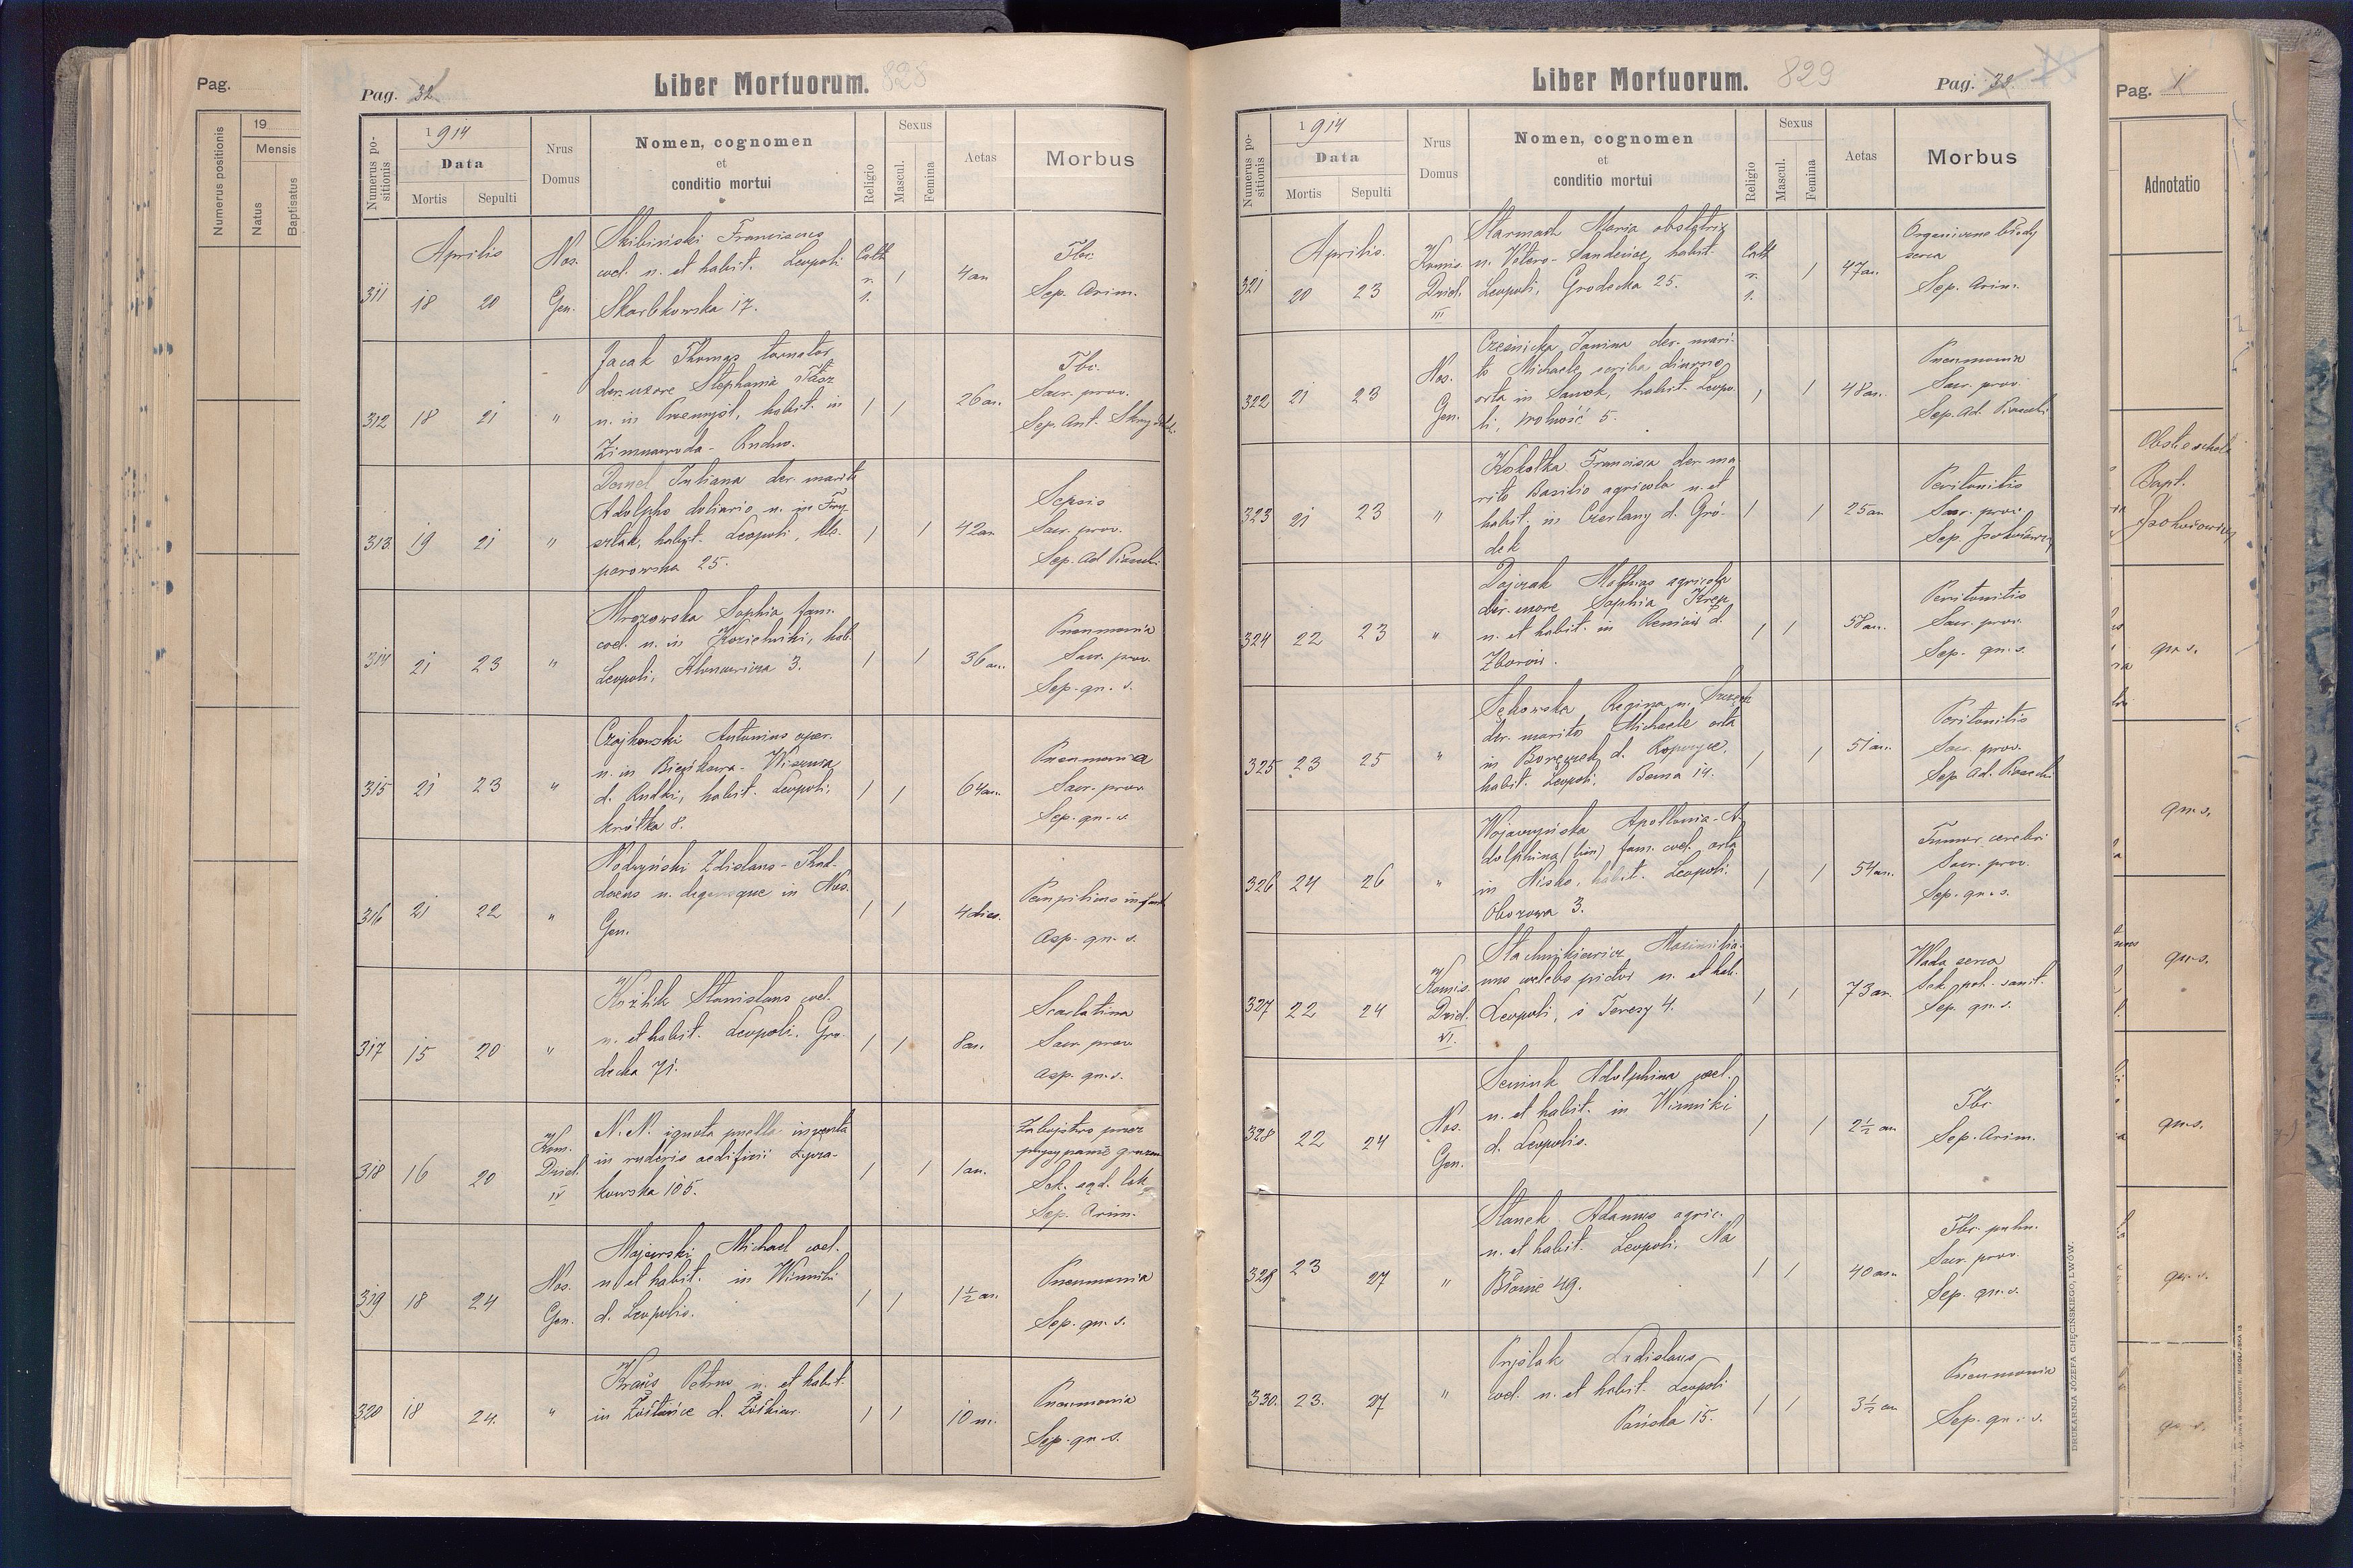 Pag.
Numerus positionis
19
Mensis
Natus
Baptisatus
Pag. 32
Liber Mortuorum. 828
Numerus positionis
1914
Data
Mortis
Sepulti
Nrus Domus
Nomen, cognomen
et
conditio mortui
Religio
Sexus
Mascul.
Femina
Aetas
Morbus
311
Aprilis
18 20
Nos.
Gen.
Skibiński Franciscus
coel. n. et habit. Leopoli
Skarbkowska 17.
Cath
r.
l.
1
4 an
Tbc.
Sep. Arim.
312 18 21 "
Jacak Thomas tornator
der. uxore Stephania
n. in Przemyśl, habit. in
Zimnawoda - Rudno.
1 1
26 an.
Tbc.
Sacr. prov.
Sep. Ant.
313. 19 21 "
Juliana der. marito
Adolpho doliario n. in Fry
sztak, habit. Leopoli, Kle-
parowska 25.
1 1
42 an
Sepsis
Sacr. prov.
Sep. Ad
314 21 23 "
Mrozowska Sophia fam.
coel. n. in Kozielniki, hab.
Leopoli, Klonowicza 3.
1 1
36 an.
Pneumonia
Sacr. prov.
Sep. qu. s.
315 21 23 "
Czajkowski Antonius oper.
n. in Wisznia
d. Rudki, habit. Leopoli,
krótka 8.
1 1
64 an.
Pneumonia
Sacr. prov
Sep. qu. s
316 21 22 "
Zdislaus - Thad-
daeus n. degensque in Nos.
Gen.
1 1
4 dies.
Asp. qu. s.
317 15 20 "
Stanislaus coel.
n. et habit. Leopoli, Gro-
decka 71.
1 1
8 an.
Scarlatina
Sacr. prov
Asp. qu. s.
318 16 20
Kom.
Dziel.
IV
N. N. ignota puella inventa
in ruderis aedificii Łycza-
kowska 105.
1 1
1 an.
Zabójstwo przez
przysypanie gruzem
Sek. sąd. lek
Sep. Arim.
319 18 24
Nos.
Gen.
Majewski Michael coel.
n. et habit. in Winniki
d. Leopolis.
1 1
1½ an.
Pneumonia
Sep. qu. s.
320 18 24. "
Kraus Petrus n. et habit.
in Żółtańce d. Żółkiew.
1 1
10 m.
Pneumonia
Sep. qu. s.
Liber Mortuorum. 829
Pag.
Numerus positionis
1914
Data
Mortis
Sepulti
Nrus Domus
Nomen, cognomen
et
conditio mortui
Religio
Sexus
Mascul.
Femina
Aetas
Morbus
321
Aprilis
20 23
Komis.
Dziel.
III
Starmach Maria obstetrix
n. Vetero-Sandeciae, habit.
Leopoli, Grodecka 25.
Cath
r.
l.
1
47 an.
Organiczne błędy
serca
Sep. Arim.
322 21 23
Nos.
Gen.
Cześnicka Janina der. mari-
to Michaele scriba diurno
orta in Sanok, habit. Leopo-
li, Wolność 5.
1 1
48 an.
Pneumonia
Sacr. prov.
Sep. Ad.
323 21 23 "
Kokotka Francisca der. ma
rito Basilio agricola n. et
habit. in Czerlany d. Gró-
dek
1 1
25 an
Peritonitis
Sacr. prov.
Sep.
324 22 23 "
Dajczak Mathias agricola
der. uxore Sophia
n. et habit. in Reniów d.
Zborów.
1 1
58 an.
Peritonitis
Sacr. prov.
Sep. qu. s.
325 23 25 "
Sękowska Regina n.
der. marito Michaele orta
in d. Ropczyce,
habit. Leopoli, Bema 14.
1 1
51 an.
Peritonitis
Sacr. prov.
Sep. Ad.
326 24 26 "
Apollonia-A-
dolphina (bin) fam. coel. orta
in Nisko, habit. Leopoli,
Oborowa 3.
1 1
54 an.
Tumor cerebri
Sacr. prov.
Sep. qu. s.
327 22 24
Komis.
Dziel.
VI.
Stachnikiewicz Maximilia-
nus coelebs pictor n. et hab.
Leopoli, ś Teresy 4.
1 1
73 an.
Wada serca
Sek. pol. sanit.
Sep. qu. s.
328 22 24
Nos.
Gen.
Adolphina coel.
n. et habit. in Winniki
d. Leopolis.
1 1
2½ an
Tbc.
Sep. Arim.
329 23 27 "
Stanek Adamus agric.
n. et habit. Leopoli, Na
Błonie 49.
1 1
40 an.
Tbc. pulm.
Sacr. prov.
Sep. qu. s.
330. 23. 27 "
Ladislaus
coel. n. et habit. Leopoli
Pańska 15.
1 1
3½ an
Pneumonia
Sep. qu. s.
DRUKARNIA JÓZEFA CHĘCIŃSKIEGO, LWÓW.
Pag. 1
Adnotatio
Bapt.
qu. s.
qu. s.
qu. s.
qu. s.
qu. s.
qu. s.